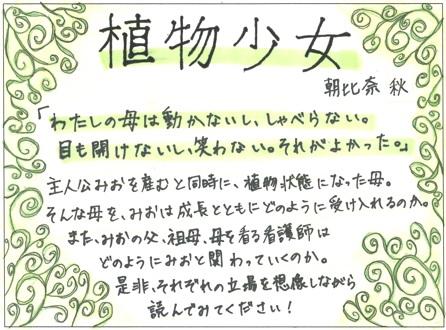 植物少女
朝比奈 秋
「わたしの母は動かないし、しゃべらない。
目も開けないし、笑わない。それがよかった。」
主人公みおを産むと同時に、植物状態になった母。
そんな母を、みおは成長とともにどのように受け入れるのか。
また、みおの父、祖母、母を看る看護師は
どのようにみおと関わっていくのか。
是非、それぞれの立場を想像しながら
読んでみてください！